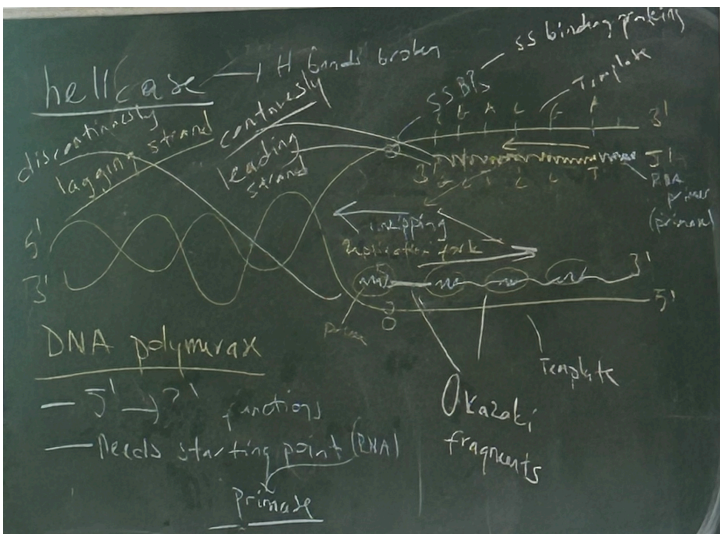 hellcase → H bonds broken
SS binding proteins
SSBPs
Template
discontinuesly
lagging strand
contunuesly
leading
strand
3'
3'
5'
RNA
primer
(primase)
5'
3'
unzipping
Replication fork
3'
5'
primer
Template
Okazaki
fragments
DNA polymerax
— 5' → 3' functions
— Needs starting point (RNA)
Primase